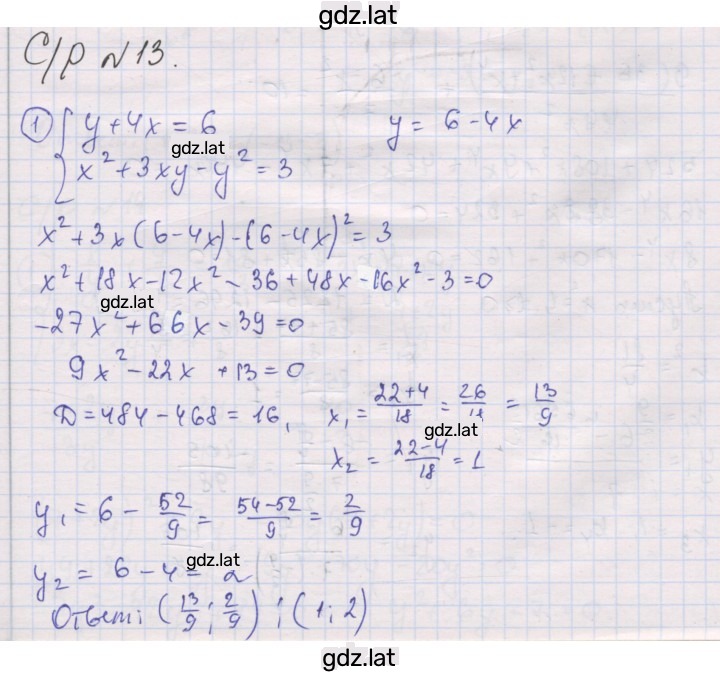 gdz.lat
С/Р №13.
1 { y + 4x = 6 y = 6 - 4x
gdz.lat
x² + 3xy - y² = 3
x² + 3x(6 - 4x) - (6 - 4x)² = 3
x² + 18x - 12x² - 36 + 48x - 16x² - 3 = 0
gdz.lat
-27x² + 66x - 39 = 0
9x² - 22x + 13 = 0
D = 484 - 468 = 16, x₁ = (22+4)/18 = 26/18 = 13/9
gdz.lat
x₂ = (22-4)/18 = 1
y₁ = 6 - 52/9 = (54-52)/9 = 2/9
gdz.lat
y₂ = 6 - 4 = 2
Ответ: (13/9; 2/9); (1; 2)
gdz.lat